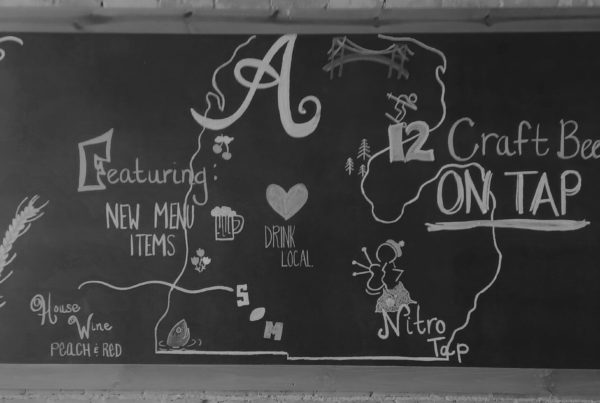 A
12 Craft Bee
ON TAP
Featuring:
NEW MENU
ITEMS
DRINK
LOCAL
S
M
House
Wine
PEACH & RED
Nitro
Tap